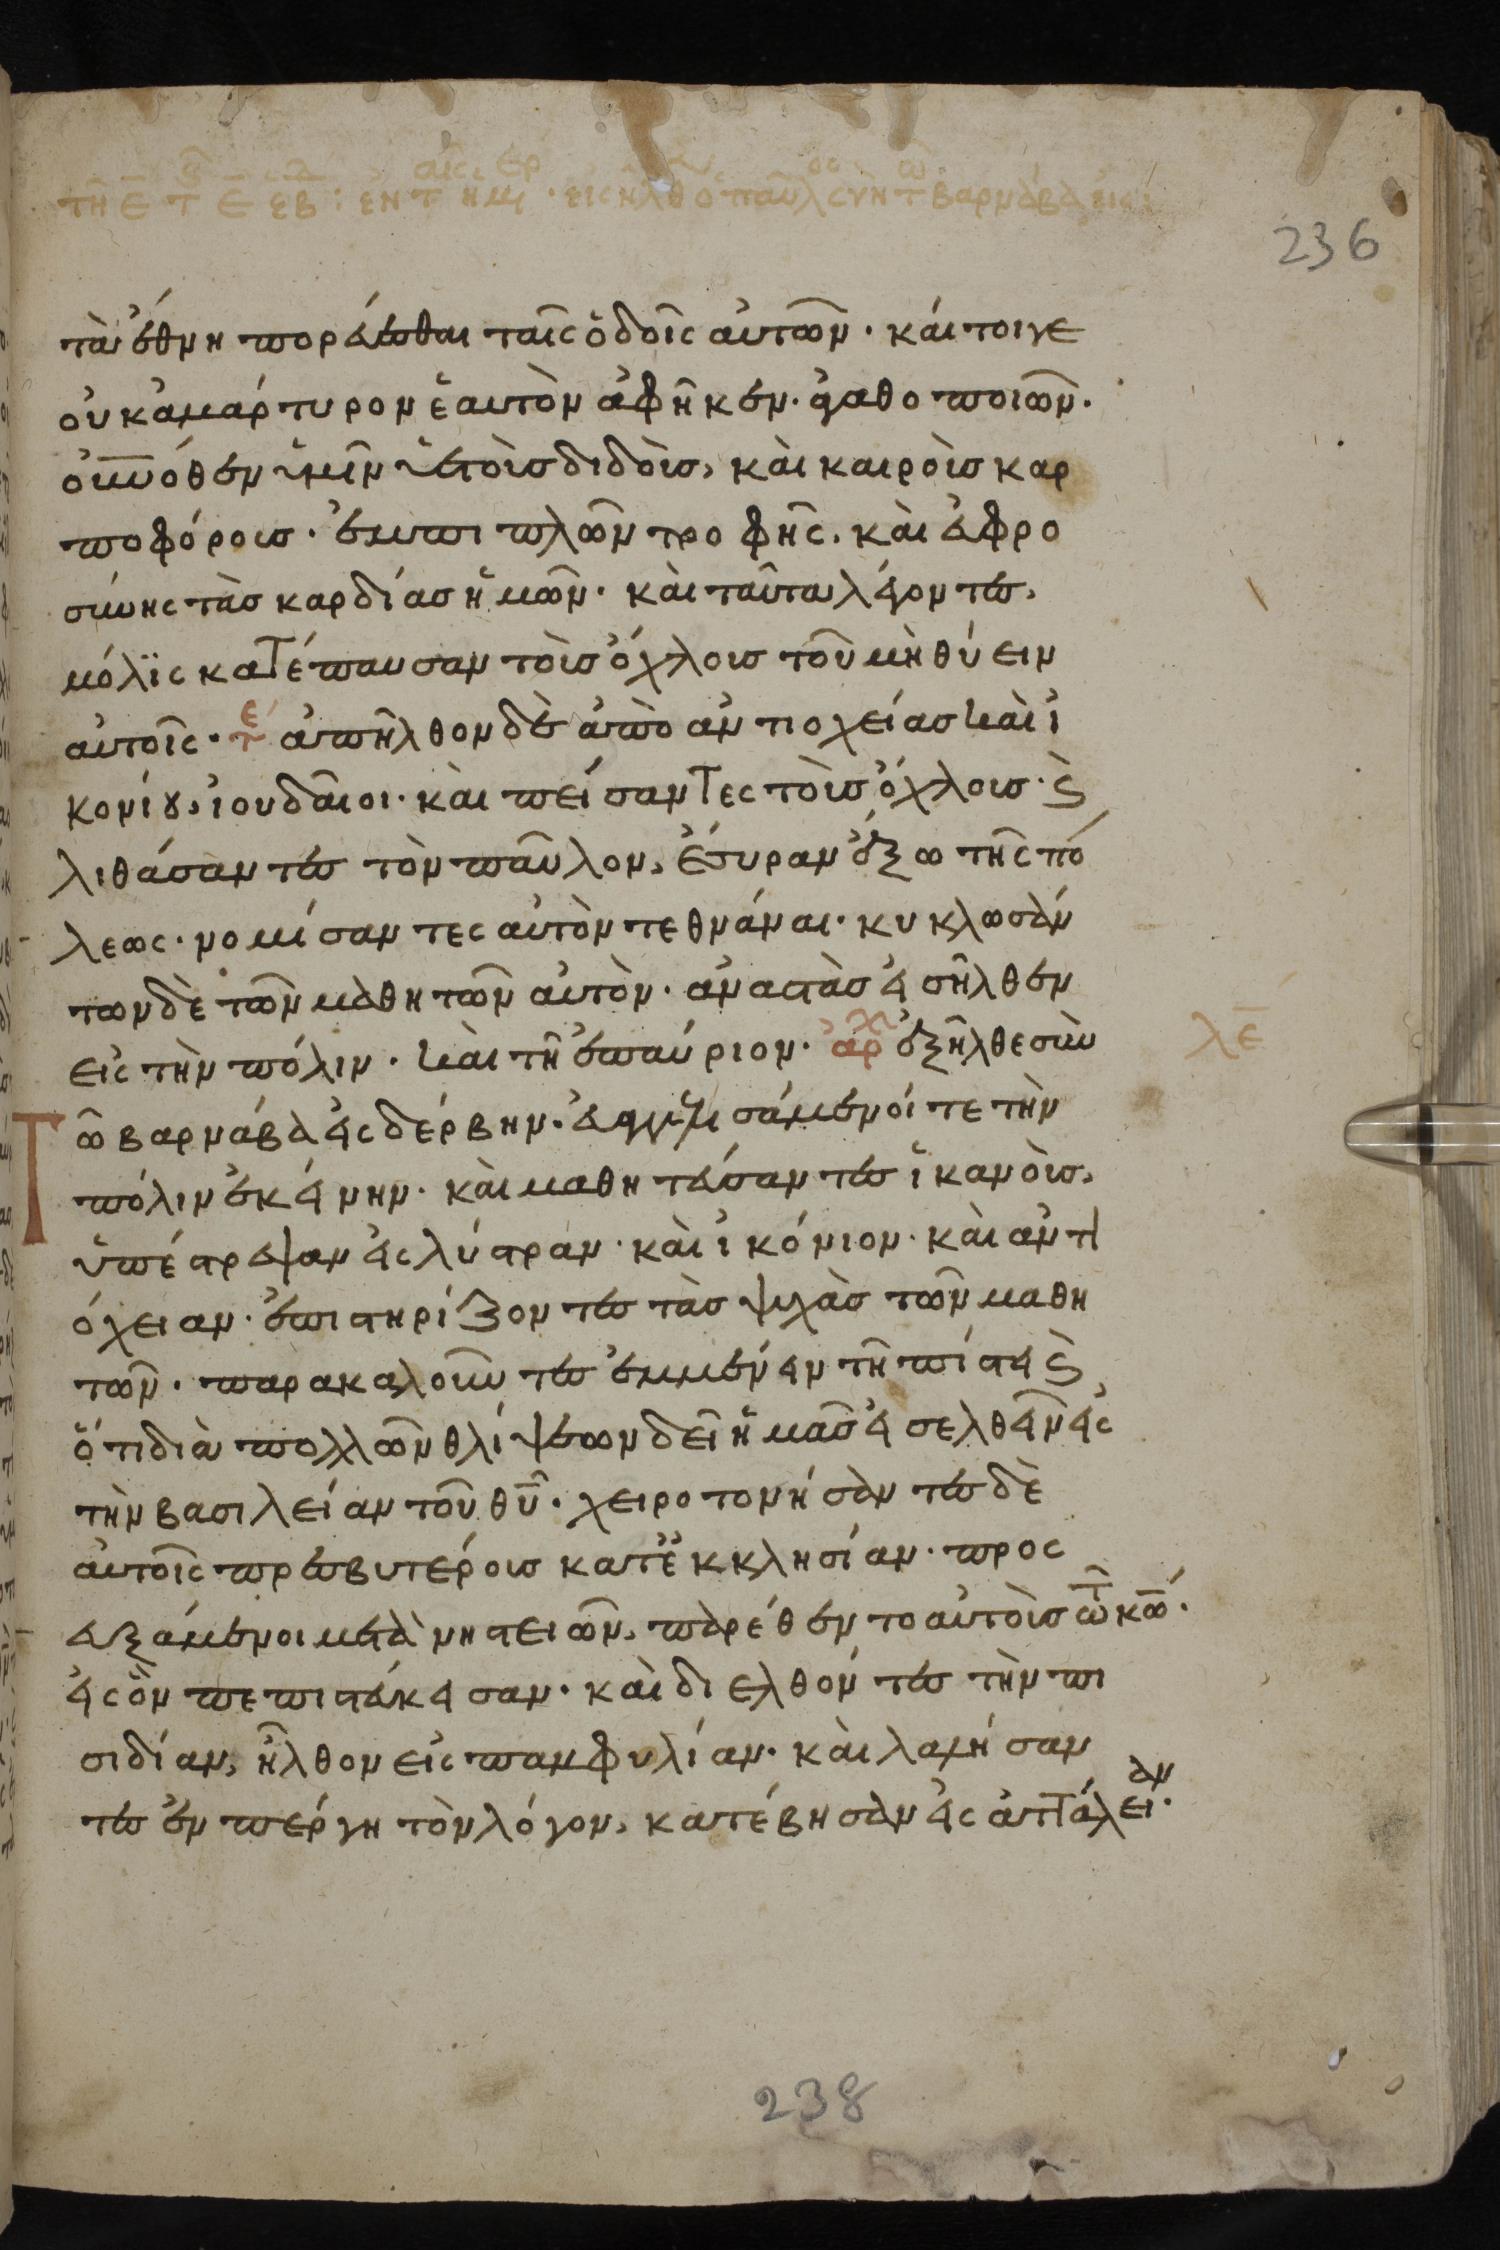 236
τὰ ἔθνη πορεύεσθαι ταῖς ὁδοῖς αὐτῶν· καίτοιγε
οὐκ ἀμάρτυρον ἑαυτὸν ἀφῆκεν· ἀγαθοποιῶν·
οὐνόθεν ἡμῖν ὑετοὺς διδοὺς, καὶ καιροὺς καρ
ποφόρους· ἐμπιπλῶν τροφῆς, καὶ εὐφρο
σύνης τὰς καρδίας ἡμῶν· καὶ ταῦτα λέγοντες,
μόλϊς κατέπαυσαν τοὺς ὄχλους τοῦ μὴ θύειν
αὐτοῖς· τε ἀπῆλθον δὲ ἀπὸ ἀντιοχείας καὶ ἰ
κονίου, ἰουδαῖοι· καὶ πείσαντες τοὺς ὄχλους· ϗ
λιθάσαντες τὸν παῦλον, ἔσυραν ἔξω τῆς πό
λεως· νομίσαντες αὐτὸν τεθνάναι· κυκλωσάν
των δὲ τῶν μαθητῶν αὐτὸν· ἀναστὰς εἰσῆλθεν
εἰς τὴν πόλιν· καὶ τῆ ἐπαύριον· ἀρχ ἐξῆλθε σὺν
λε
τῶ βαρνάβα εἰς δέρβην· εὐαγγελισάμενοί τε τὴν
πόλιν ἐκείνην· καὶ μαθητεύσαντες ἱκανοὺς,
ὑπέστρεψαν εἰς λύστραν· καὶ ἰκόνιον· καὶ ἀντι
όχειαν· ἐπιστηρίζοντες τὰς ψυχὰς τῶν μαθη
τῶν· παρακαλοῦντες ἐμμένειν τῆ πίστει ϗ
ὅτι διὰ πολλῶν θλίψεων δεῖ ἡμᾶς εἰσελθεῖν εἰς
τὴν βασιλείαν τοῦ θυ· χειροτονήσαντες δὲ
αὐτοῖς πρεσβυτέρους κατ ἐκκλησίαν· προς
ευξάμενοι μετὰ νηστειῶν, παρέθεντο αὐτοὺς τῶ κω·
εἰς ὃν πεπιστεύκεισαν· καὶ διελθόντες τὴν πι
σιδίαν, ἦλθον εἰς παμφυλίαν· καὶ λαλήσαν
τες ἐν πέργη τὸν λόγον, κατέβησαν εἰς ἀττάλειαν·
238